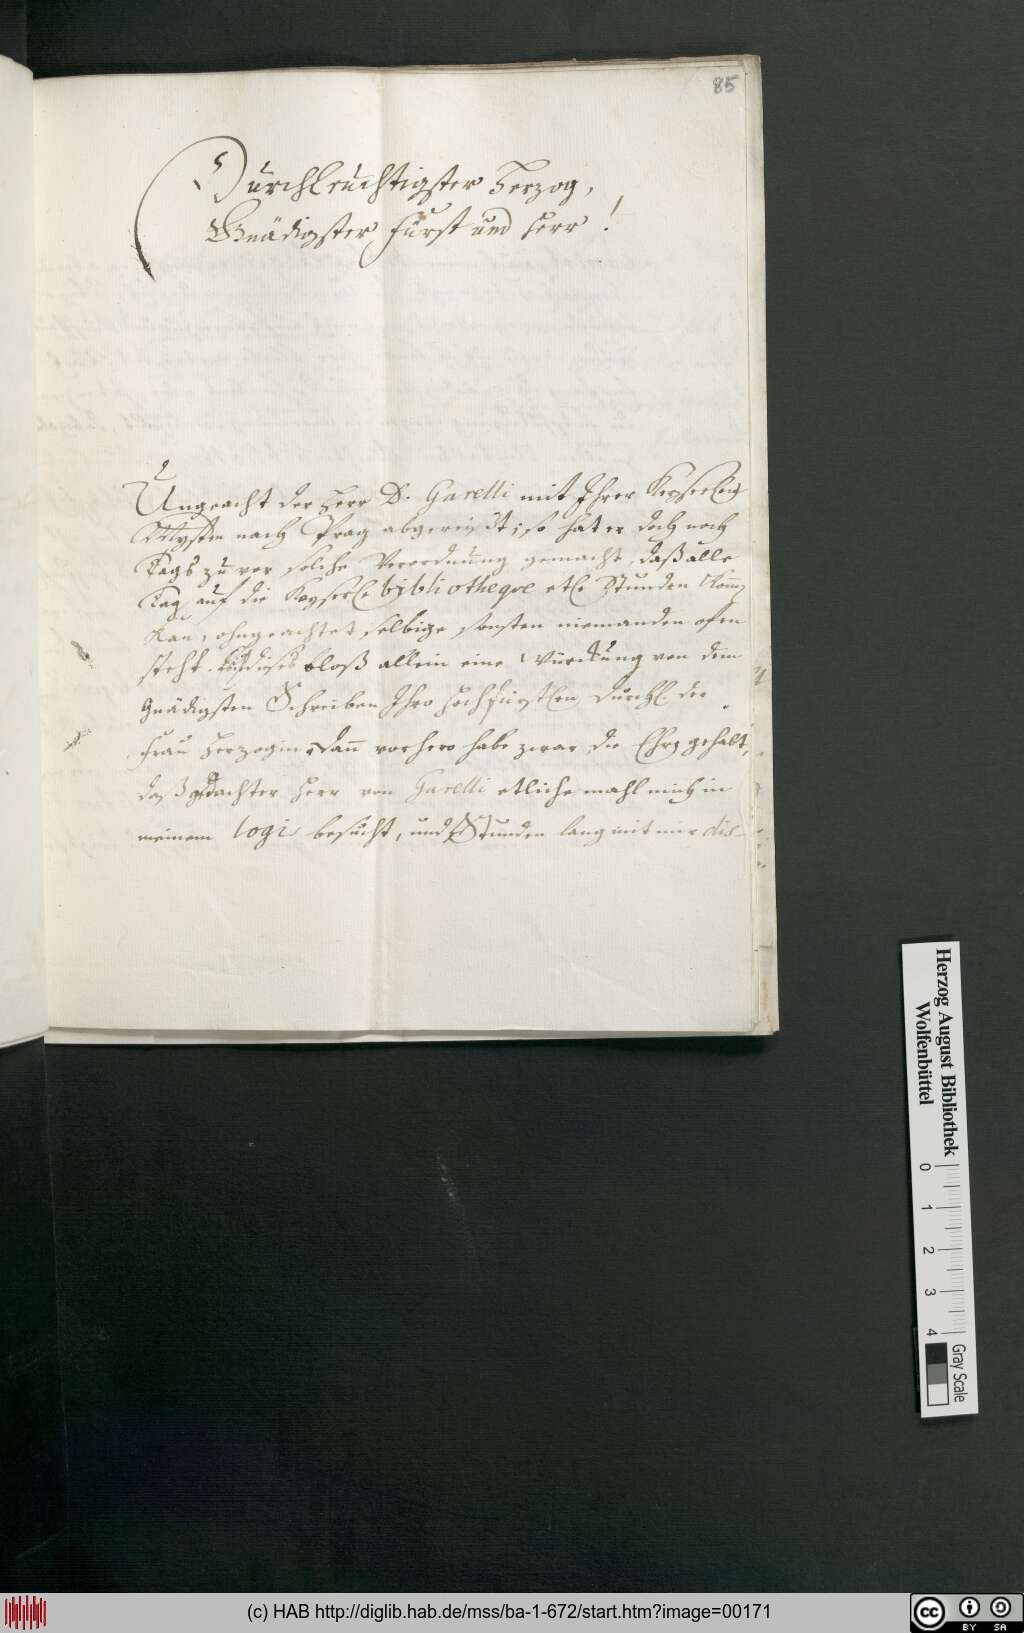 85
Durchleuchtigster Herzog,
Gnädigster Fürst und Herr!
Ungeacht der Herr D. Garelli mit Ihrer Keyserl.
Mystn nach Prag abgereißt; so hat er doch noch
Tags zu vor solche Verordnung gemacht, daß alle
Tag auf die Keyserl. bibliotheqve etl. Stunden
Kan, ohngeachtet selbige sonsten niemanden ofen
steht. dieses bloß allein eine Würckung von dem
Gnädigsten Schreiben Ihro Hochfürstlen Durchl. der
Frau Herzogin, Dann vorhero habe zwar die Ehre gehabt,
daß gedachter Herr von Garelli etliche mahl mich in
meinem logi besucht, und Stunden lang mit mir dis-
Herzog August Bibliothek
Wolfenbüttel
0 1 2 3 4
Gray Scale
(c) HAB http://diglib.hab.de/mss/ba-1-672/start.htm?image=00171
cc BY SA